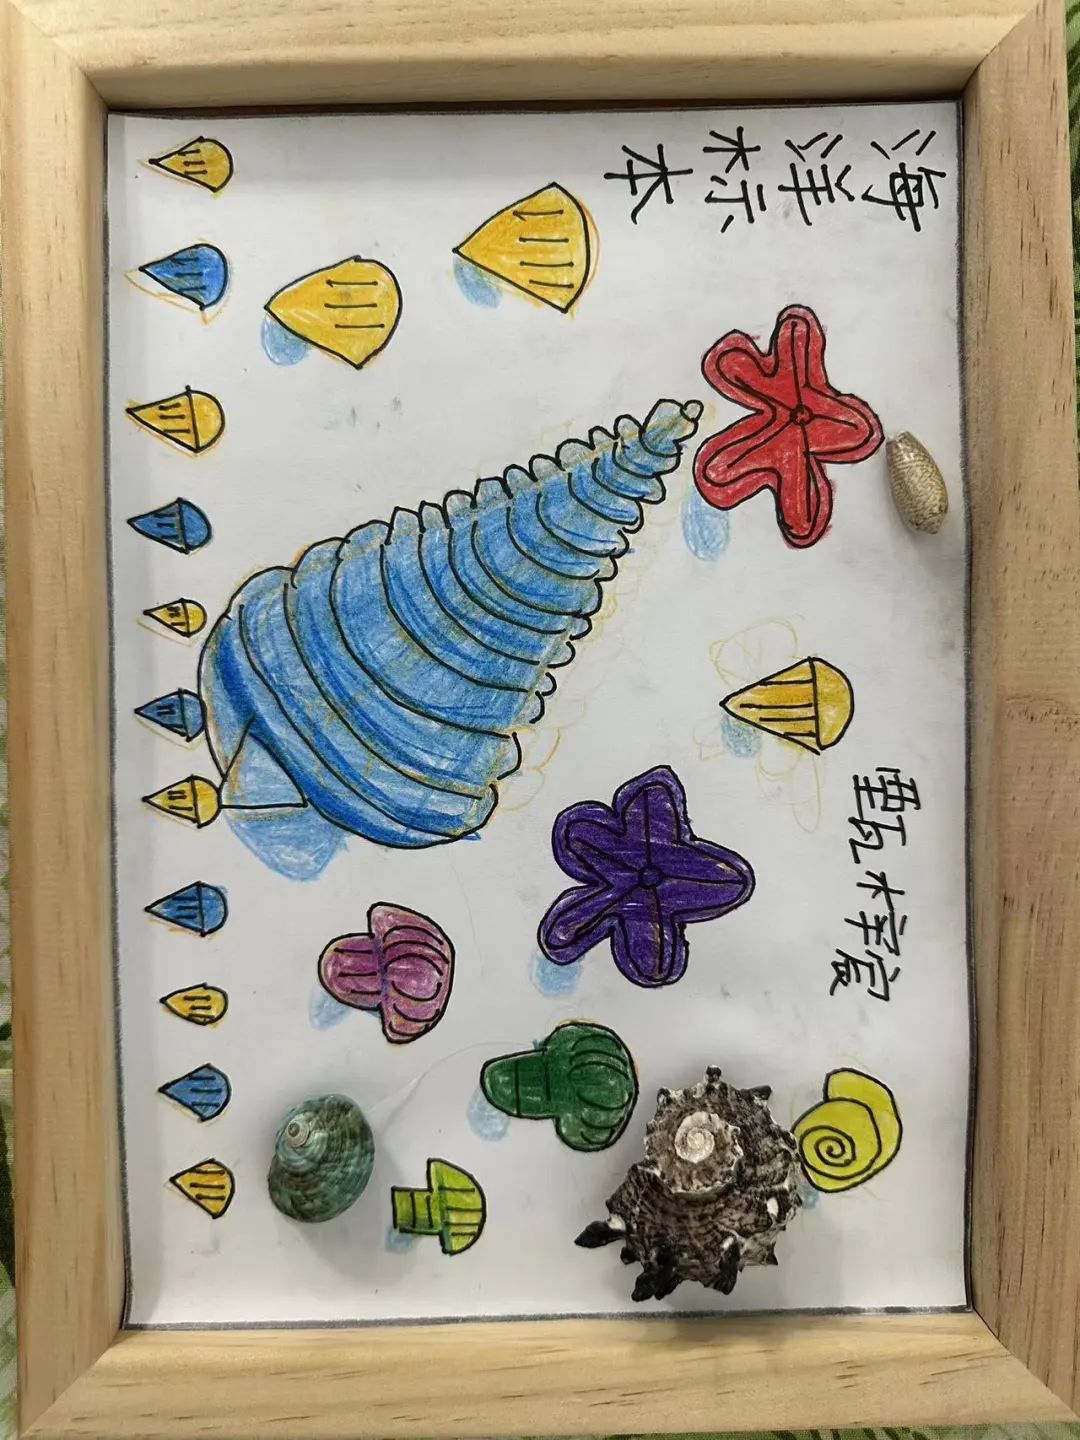 海洋标本
甄梓宸